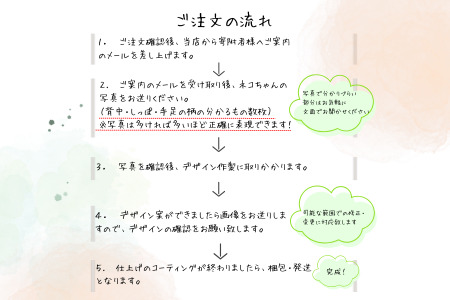 ご注文の流れ
1. ご注文確認後、当店から寄附者様へご案内
のメールを差し上げます。
2. ご案内のメールを受け取り後、ネコちゃんの
写真をお送りください。
(背中・しっぽ・手足の柄の分かるもの数枚)
※写真は多ければ多いほど正確に表現できます!
写真で分かりづらい
部分はお気軽に
文面でお聞かせください
3. 写真を確認後、デザイン作製に取りかかります。
4. デザイン案ができましたら画像をお送りしま
すので、デザインの確認をお願い致します。
可能な範囲での修正・
変更に対応致します
5. 仕上げのコーティングが終わりましたら、梱包・発送
となります。
完成!